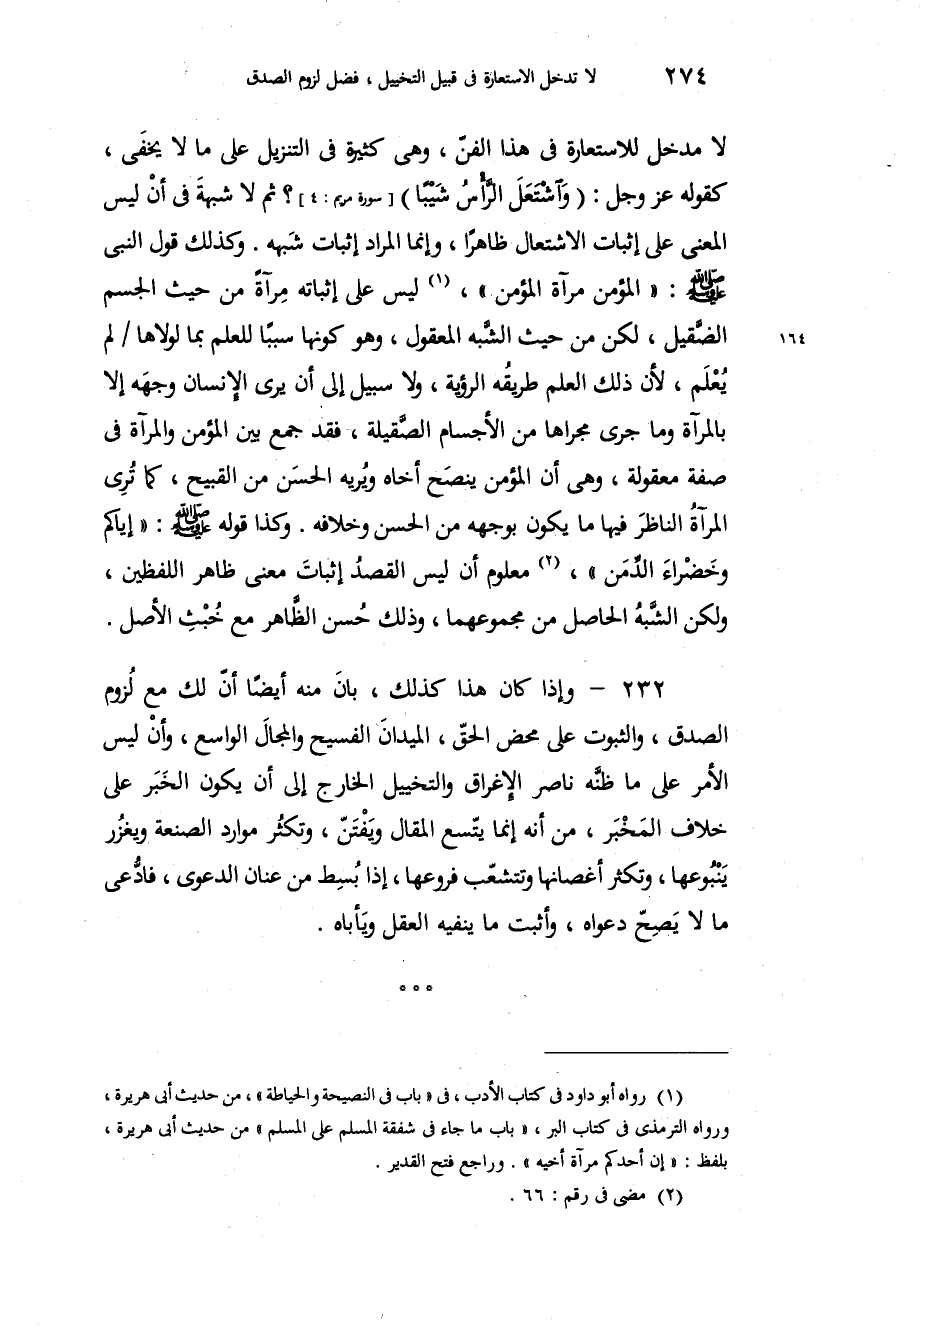 ٢٧٤ لا تدخل الاستعارة فى قبيل التخييل ، فضل لزوم الصدق
لا مدخل للاستعارة فى هذا الفنّ ، وهى كثيرة فى التنزيل على ما لا يخفَى ،
كقوله عز وجل : ( وَٱشْتَعَلَ الرَّأْسُ شَيْبًا ) [ سورة مريم : ٤ ] ؟ ثم لا شبهةَ فى أنْ ليس
المعنى على إثبات الاشتعال ظاهرًا ، وإنما المراد إثبات شَبهه . وكذلك قول النبى
ﷺ : « المؤمن مرآة المؤمن » ، (١) ليس على إثباته مِرآةً من حيث الجسم
الصَّقيل ، لكن من حيث الشَّبه المعقول ، وهو كونها سببًا للعلم بما لولاها / لم
١٦٤
يُعْلَم ، لأن ذلك العلم طريقُه الرؤية ، ولا سبيل إلى أن يرى الإنسان وجهَه إلا
بالمرآة وما جرى مجراها من الأجسام الصَّقيلة ، فقد جمع بين المؤمن والمرآة فى
صفة معقولة ، وهى أن المؤمن ينصَح أخاه ويُريه الحسَن من القبيح ، كما تُرِى
المرآةُ الناظرَ فيها ما يكون بوجهه من الحسن وخلافه . وكذا قوله ﷺ : « إياكم
وخَضْراءَ الدِّمَن » ، (٢) معلوم أن ليس القصدُ إثباتَ معنى ظاهر اللفظين ،
ولكن الشَّبهُ الحاصل من مجموعهما ، وذلك حُسن الظَّاهر مع خُبْثِ الأصل .
٢٣٢ – وإذا كان هذا كذلك ، بانَ منه أيضًا أنّ لك مع لُزوم
الصدق ، والثبوت على محض الحقّ ، الميدانَ الفسيح والمجالَ الواسع ، وأنْ ليس
الأمر على ما ظنَّه ناصر الإغراق والتخييل الخارج إلى أن يكون الخَبَر على
خلاف المَخْبَر ، من أنه إنما يتّسع المقال ويَفْتَنّ ، وتكثُر موارد الصنعة ويغزُر
يَنْبُوعها ، وتكثر أغصانها وتتشعّب فروعها ، إذا بُسِط من عنان الدعوى ، فادُّعى
ما لا يَصِحّ دعواه ، وأثبت ما ينفيه العقل ويَأباه .
° ° °
(١) رواه أبو داود فى كتاب الأدب ، فى « باب فى النصيحة والحياطة » ، من حديث أبى هريرة ،
ورواه الترمذى فى كتاب البر ، « باب ما جاء فى شفقة المسلم على المسلم » من حديث أبى هريرة ،
بلفظ : « إن أحدكم مرآة أخيه » . وراجع فتح القدير .
(٢) مضى فى رقم : ٦٦ .